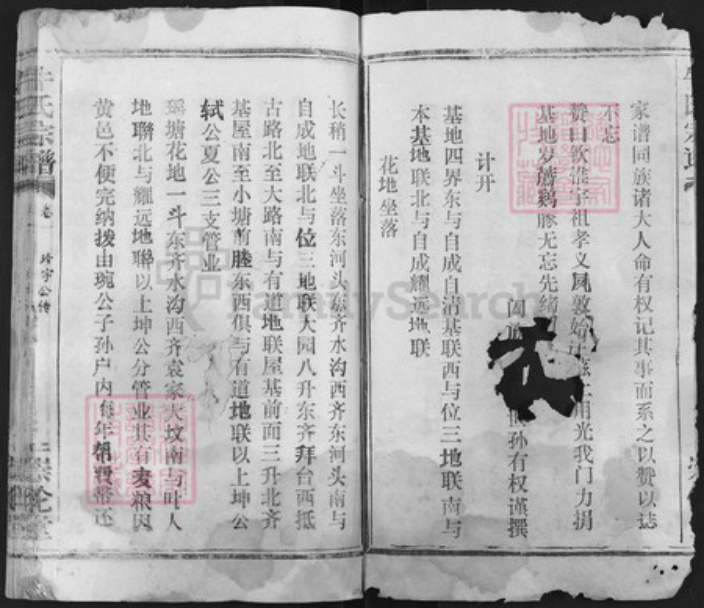 家谱同族诸大人命有权记其事而系之以赞以誌
不忘
赞曰
祖孝义凤敦始
用光我门力捐
基地岁荐鸡豚无忘先绪
孙有权谨撰
计开
基地四界东与自成自清基联西与位三地联南与
本基地联北与自成耀远地联
花地坐落
长稍一斗坐落东河头东齐水沟西齐东河头南与
自成地联北与位三地联大园八升东齐拜台西抵
古路北至大路南与有道地联屋基前面三升北齐
基屋南至小塘前塍东西俱与有道地联以上坤公
轼公夏公三支管业
瑶塘花地一斗东齐水沟西齐袁家大坟南与叶人
地联北与耀远地联以上坤公分管业其有麦粮因
黄邑不便完纳拨由琬公子孙户内每年
还
氏宗谱
卷一
公传
FamilySearch